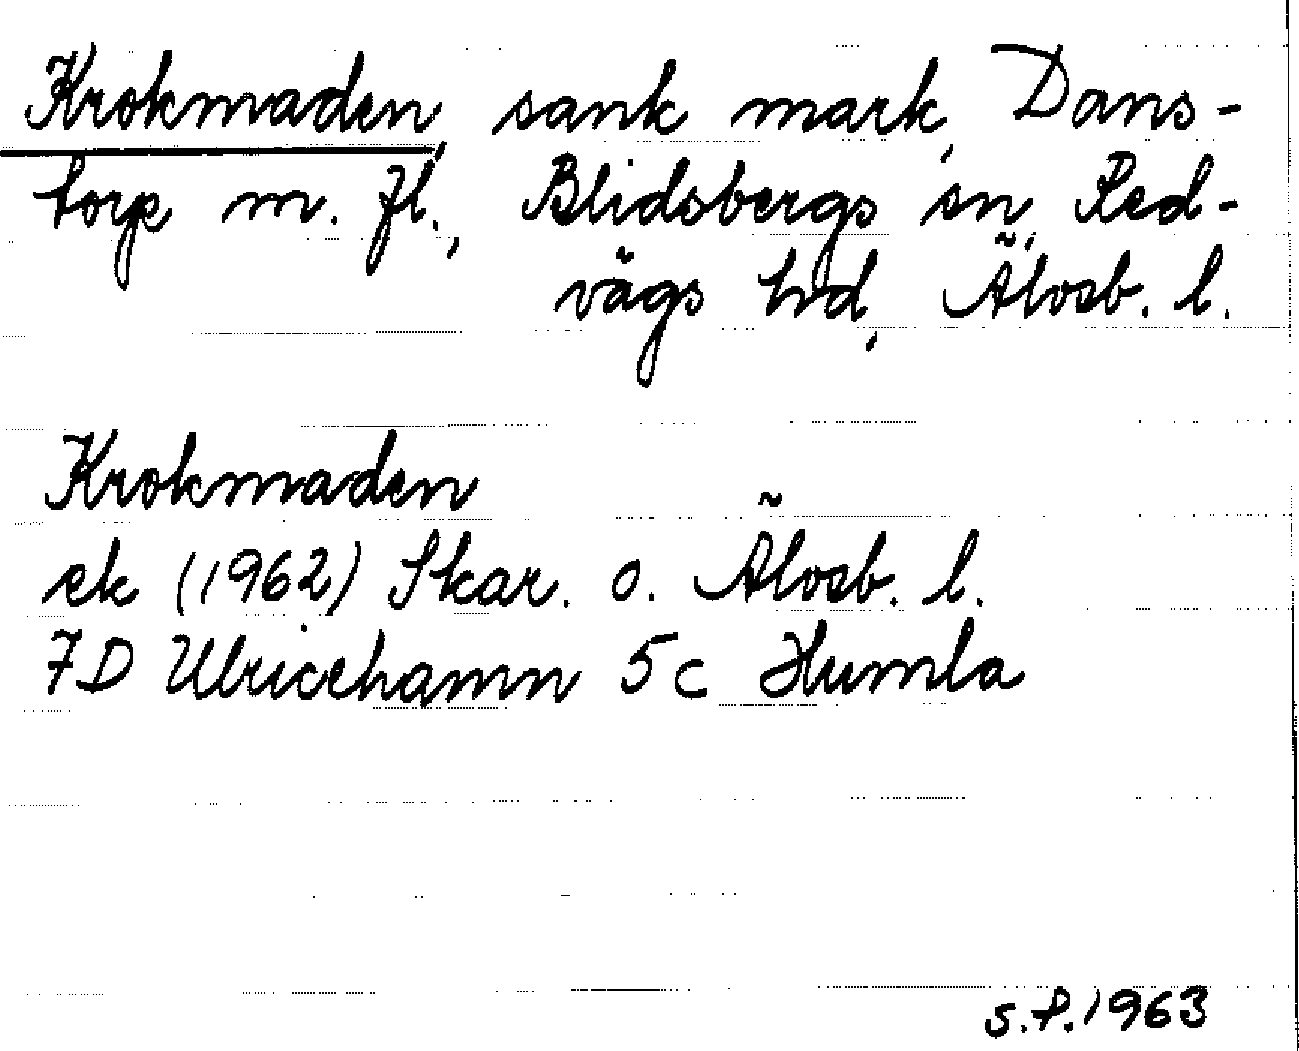 Krokmaden, sank mark, Dans-
torp m. fl., Blidsbergs sn, Red-
vägs hd, Älvsb. l.
Krokmaden
ek (1962) Skar. o. Älvsb. l.
7D Ulricehamn 5c Humla
S.P. 1963